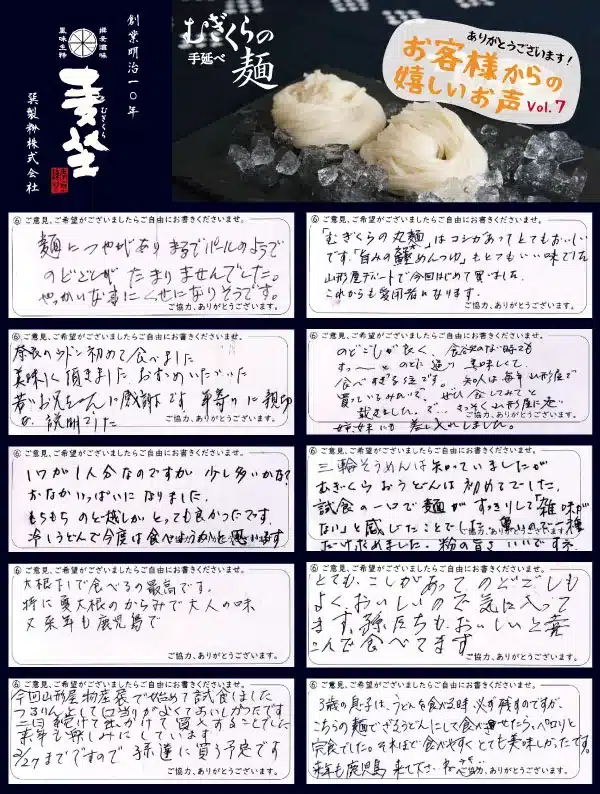 創業明治一〇年
厳選滋味
風味生粋
麦坐
むぎくら
巽製粉株式会社
むぎくらの
手延べ
麺
ありがとうございます！
お客様からの
嬉しいお声
Vol.7
⑥ ご意見、ご希望がございましたらご自由にお書きくださいませ。
麺につやがあり まるでパールのようで
のどごしが たまりませんでした。
やっかいな事に くせになりそうです。
ご協力、ありがとうございます。
⑥ ご意見、ご希望がございましたらご自由にお書きくださいませ。
「むぎくらの丸麺」はコシがあってとてもおいしい
です。「旨みの鰹めんつゆ」もとてもいい味でした
山形屋デパートで今回はじめて買いました。
これからも愛用者になります。
ご協力、ありがとうございます。
⑥ ご意見、ご希望がございましたらご自由にお書きくださいませ。
奈良のウドン初めて食べました
美味しく頂きました おすすめいただいた
若いお兄ちゃんに感謝です 年寄りに親切
な 説明でした
ご協力、ありがとうございます。
⑥ ご意見、ご希望がございましたらご自由にお書きくださいませ。
のどごしが良く、食欲のない時でも
す〜っと のどに 通り 美味しくて、
食べすぎる位です。 知人は毎年山形屋で
買っているみたいで、ぜひ食してみてと
頂きました。で、さっそく山形屋に
姉妹にも 差し入れしました。
ご協力、ありがとうございます。
⑥ ご意見、ご希望がございましたらご自由にお書きくださいませ。
1ワが1人分なのですが 少し多いかな?
おなかいっぱいに なりました。
もちもち のど越しが とっても良かったです。
冷しうどんで今度は食べようかと思います
ご協力、ありがとうございます。
⑥ ご意見、ご希望がございましたらご自由にお書きくださいませ。
三輪そうめんは知っていましたが
むぎくらおうどんは初めてでした。
試食の一口で麺がすっきりして「雑味が
ない」と感じたことでした。重いので一種
だけ求めました。粉の旨さ いいですネ
⑥ ご意見、ご希望がございましたらご自由にお書きくださいませ。
大根おろしで食べるの最高です。
特に夏大根のからみで大人の味
又来年も鹿児島で
ご協力、ありがとうございます。
⑥ ご意見、ご希望がございましたらご自由にお書きくださいませ。
とても、こしがあって のどごしも
よく、おいしいので気に入って
ます。孫たちも、おいしいと喜
こんで食べてます
ご協力、ありがとうございます。
⑥ ご意見、ご希望がございましたらご自由にお書きくださいませ。
今回山形屋物産展で始めて試食しました
つるりんとして口当りがよくておいしかったです
二日続けて出かけて買入することでした
来年も楽しみにしています
2/27までですので 子孫達に買う予定です
ご協力、ありがとうございます。
⑥ ご意見、ご希望がございましたらご自由にお書きくださいませ。
3歳の息子は、うどんを食べる時、必ず残すのですが、
こちらの麺でざるうどんにして食べさせたら、ペロリと
完食でした。それほど食べやすくとても美味しかったです。
来年も鹿児島 来て下さいね
ご協力、ありがとうございます。